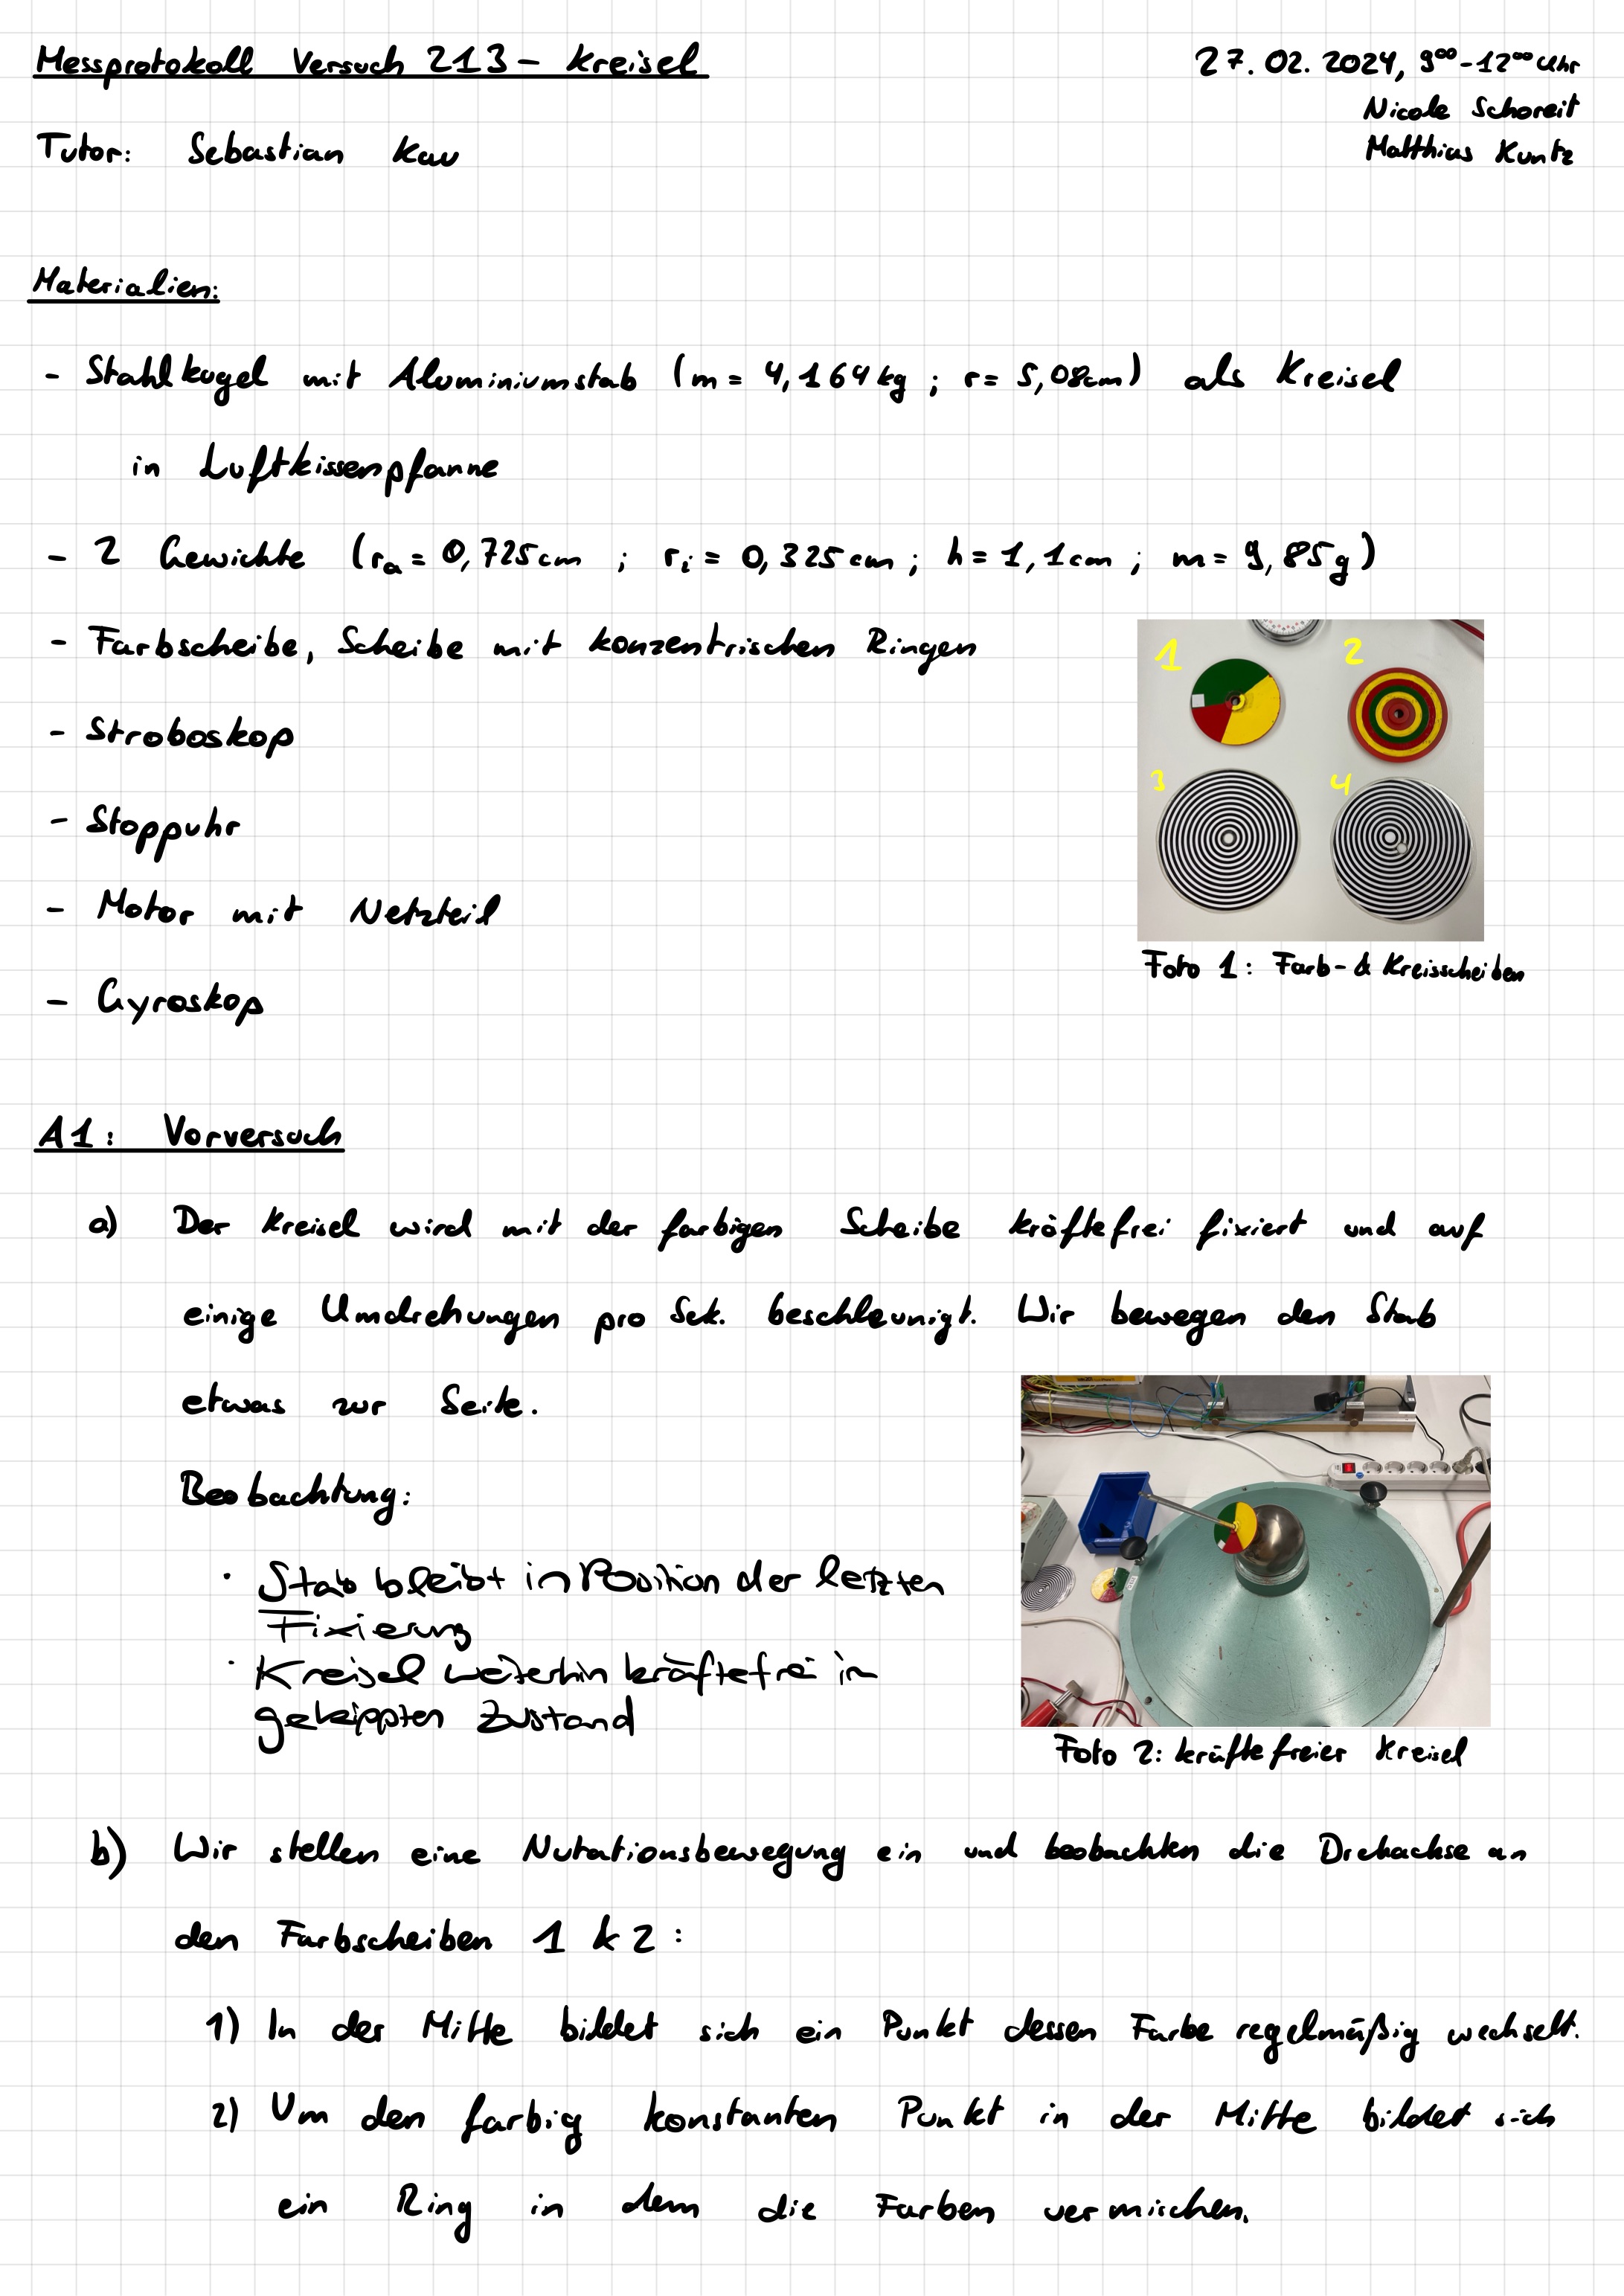 Messprotokoll Versuch 213 - Kreisel
27.02.2024, 9⁰⁰-12⁰⁰ Uhr
Nicole Schoreit
Matthias Kuntz
Tutor: Sebastian Kau
Materialien:
- Stahlkugel mit Aluminiumstab (m = 4,164kg ; r = 5,08cm) als Kreisel
in Luftkissenpfanne
- 2 Gewichte (rₐ = 0,725cm ; rᵢ = 0,325cm ; h = 1,1cm ; m = 9,85g)
- Farbscheibe, Scheibe mit konzentrischen Ringen
- Stroboskop
- Stoppuhr
- Motor mit Netzteil
- Gyroskop
1 2
3 4
Foto 1: Farb- & Kreisscheiben
A1: Vorversuch
a) Der Kreisel wird mit der farbigen Scheibe kräftefrei fixiert und auf
einige Umdrehungen pro Sek. beschleunigt. Wir bewegen den Stab
etwas zur Seite.
Beobachtung:
· Stab bleibt in Position der letzten
Fixierung
· Kreisel weiterhin kräftefrei in
gekippten Zustand
Foto 2: kräftefreier Kreisel
b) Wir stellen eine Nutationsbewegung ein und beobachten die Drehachse an
den Farbscheiben 1 & 2:
1) In der Mitte bildet sich ein Punkt dessen Farbe regelmäßig wechselt.
2) Um den farbig konstanten Punkt in der Mitte bildet sich
ein Ring in dem die Farben vermischen.